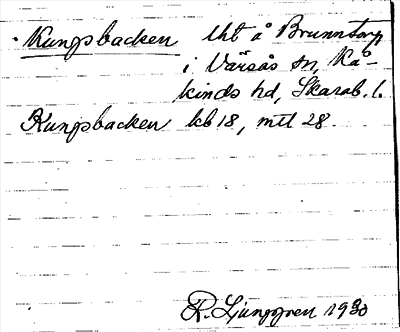 Kungsbacken lht å Brunnstorp
i Värsås sn, Kå-
kinds hd, Skarab. l.
Kungsbacken kb 18, mtl 28.
R. Ljunggren 1930